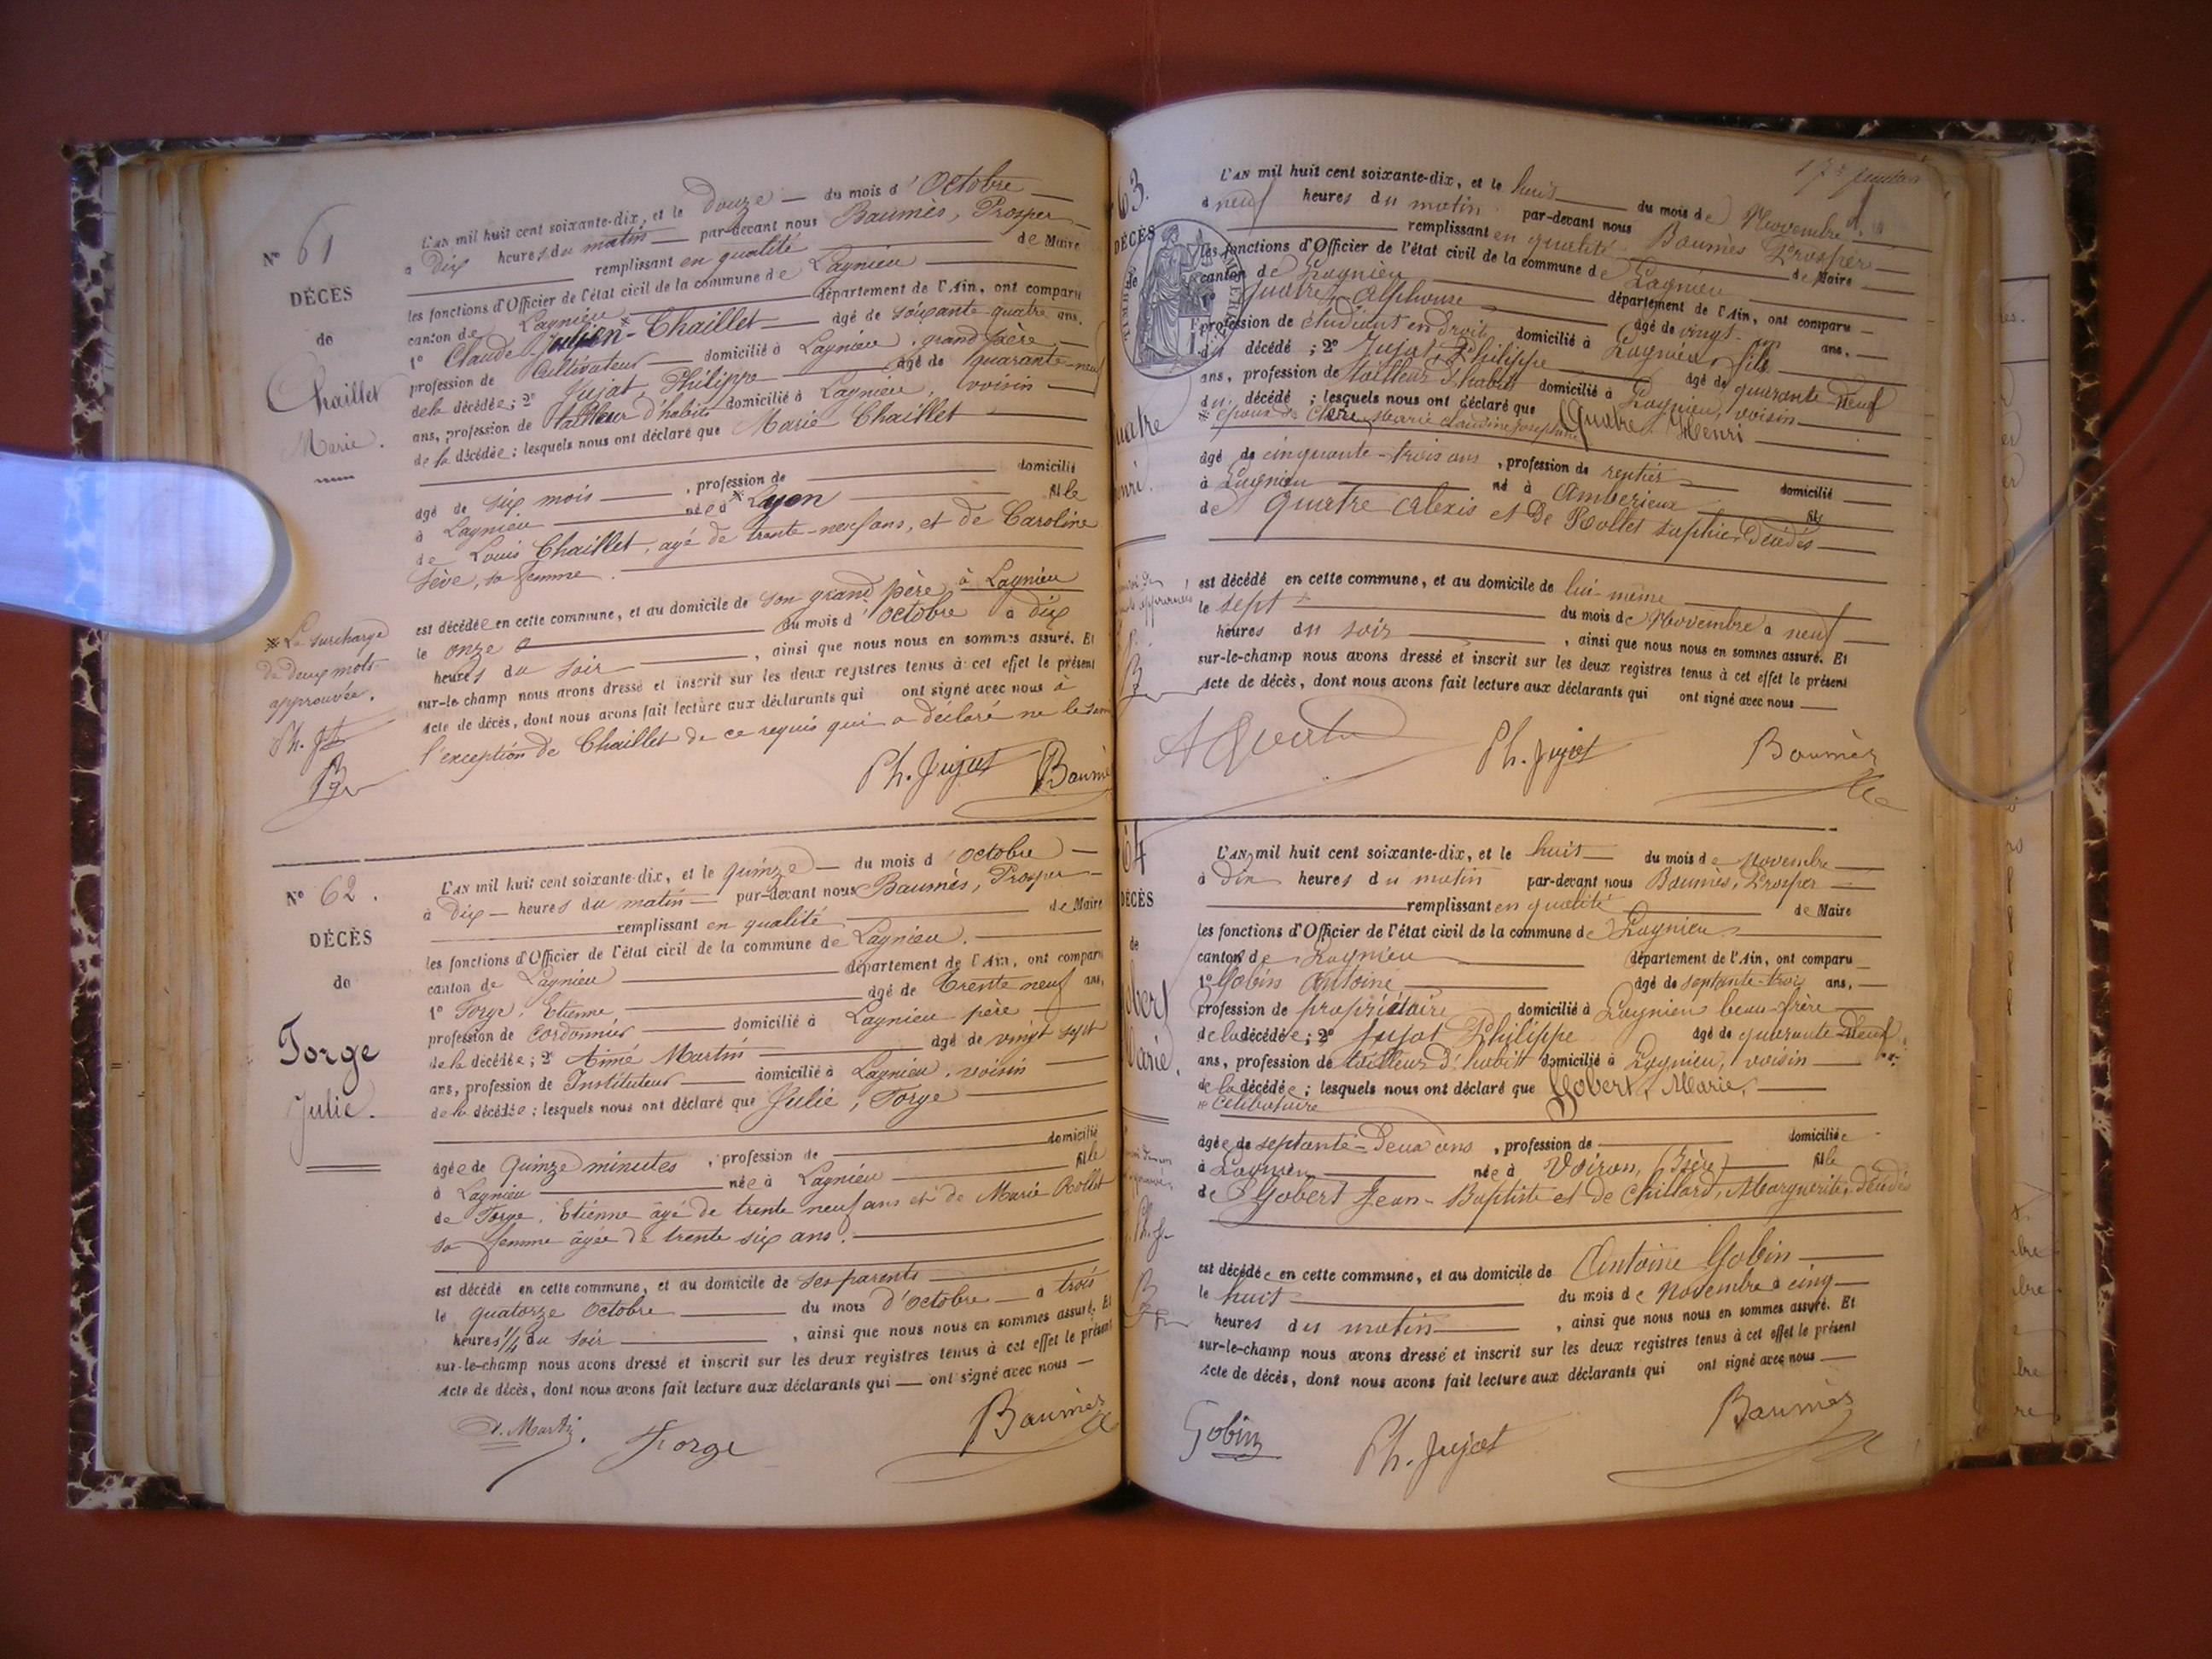 N° 61
DÉCÈS
de
Chaillet
Marie.
L'AN mil huit cent soixante-dix, et le douze — du mois d'Octobre
à Dix heures du matin — par-devant nous Baumès, Prosper
remplissant en qualité de Maire
les fonctions d'Officier de l'état civil de la commune de Lagnieu
canton de Lagnieu département de l'Ain, ont comparu
1° Claude-Julien-Chaillet — âgé de soixante-quatre ans,
profession de Cultivateur — domicilié à Lagnieu, grand père
de la décédée; 2° Jujat, Philippe âgé de quarante-neuf
ans, profession de tailleur d'habits domicilié à Lagnieu, voisin
de la décédée; lesquels nous ont déclaré que Marie Chaillet
domicilié
âgé de six mois — , profession de
à Lagnieu née à Lyon fille
de Louis Chaillet, agé de trente-neuf ans, et de Caroline
Sève, sa femme.
est décédée en cette commune, et au domicile de son grand père à Lagnieu
le onze du mois d'octobre à dix
heures du soir , ainsi que nous nous en sommes assuré. Et
sur-le-champ nous avons dressé et inscrit sur les deux registres tenus à cet effet le présent
acte de décès, dont nous avons fait lecture aux déclarants qui ont signé avec nous à
l'exception de Chaillet de ce requis qui a déclaré ne le
La surcharge
de deux mots
approuvée.
Ph. Jt
Ph. Jujat Baumès
N° 62.
DÉCÈS
de
Forge
Julie.
L'AN mil huit cent soixante-dix, et le quinze — du mois d'octobre —
à Dix — heures du matin — par-devant nous Baumès, Prosper —
remplissant en qualité de Maire
les fonctions d'Officier de l'état civil de la commune de Lagnieu.
canton de Lagnieu département de l'Ain, ont comparu
1° Forge, Etienne âgé de trente neuf ans,
profession de cordonnier domicilié à Lagnieu père
de la décédée; 2° Aimé Martin âgé de vingt sept
ans, profession de Instituteur domicilié à Lagnieu, voisin
de la décédée; lesquels nous ont déclaré que Julie, Forge
domicilié
âgée de quinze minutes , profession de
à Lagnieu née à Lagnieu fille
de Forge, Etienne âgé de trente neuf ans et de Marie Rollet
sa femme âgée de trente six ans.
est décédé en cette commune, et au domicile de ses parents
le quatorze octobre du mois d'octobre — à trois
heures 1/4 du soir , ainsi que nous nous en sommes assuré. Et
sur-le-champ nous avons dressé et inscrit sur les deux registres tenus à cet effet le présent
acte de décès, dont nous avons fait lecture aux déclarants qui — ont signé avec nous —
A. Martin. Forge Baumès
63.
DÉCÈS
de
uatre
enri.
L'AN mil huit cent soixante-dix, et le huit du mois de Novembre
à neuf heures du matin par-devant nous Baumès Prosper
remplissant en qualité de Maire
les fonctions d'Officier de l'état civil de la commune de Lagnieu
canton de Lagnieu département de l'Ain, ont comparu
1° Quatre, Alphonse âgé de vingt-un ans,
profession de étudiant en droit domicilié à Lagnieu, fils
du décédé; 2° Jujat, Philippe âgé de quarante-neuf
ans, profession de tailleur d'habits domicilié à Lagnieu, voisin
du décédé; lesquels nous ont déclaré que Quatre Henri
époux de Marie Claudine Joséphine
âgé de cinquante-trois ans, profession de rentier domicilié
à Lagnieu né à Ambérieux fils
de Quatre Alexis et de Rollet Sophie, Décédés
est décédé en cette commune, et au domicile de lui-même
le sept du mois de Novembre à neuf
heures du soir , ainsi que nous nous en sommes assuré. Et
sur-le-champ nous avons dressé et inscrit sur les deux registres tenus à cet effet le présent
acte de décès, dont nous avons fait lecture aux déclarants qui ont signé avec nous
Ph. Jujat Baumès
64
DÉCÈS
de
obert
Marie.
L'AN mil huit cent soixante-dix, et le huit du mois de Novembre
à Dix heures du matin par-devant nous Baumès, Prosper
remplissant en qualité de Maire
les fonctions d'Officier de l'état civil de la commune de Lagnieu
canton de Lagnieu département de l'Ain, ont comparu
1° Gobin Antoine, âgé de septante-trois ans,
profession de propriétaire domicilié à Lagnieu beau-frère
de la décédée; 2° Jujat Philippe âgé de quarante-neuf
ans, profession de tailleur d'habits domicilié à Lagnieu, voisin
de la décédée; lesquels nous ont déclaré que Gobert, Marie,
célibataire
âgée de septante-deux ans, profession de domiciliée
à Lagnieu née à Voiron, (Isère) fille
de Gobert Jean-Baptiste et de Chillard, Marguerite, Décédés
est décédée en cette commune, et au domicile de Antoine Gobin
le huit du mois de Novembre à cinq
heures du matin , ainsi que nous nous en sommes assuré. Et
sur-le-champ nous avons dressé et inscrit sur les deux registres tenus à cet effet le présent
acte de décès, dont nous avons fait lecture aux déclarants qui ont signé avec nous
Gobin Ph. Jujat Baumès